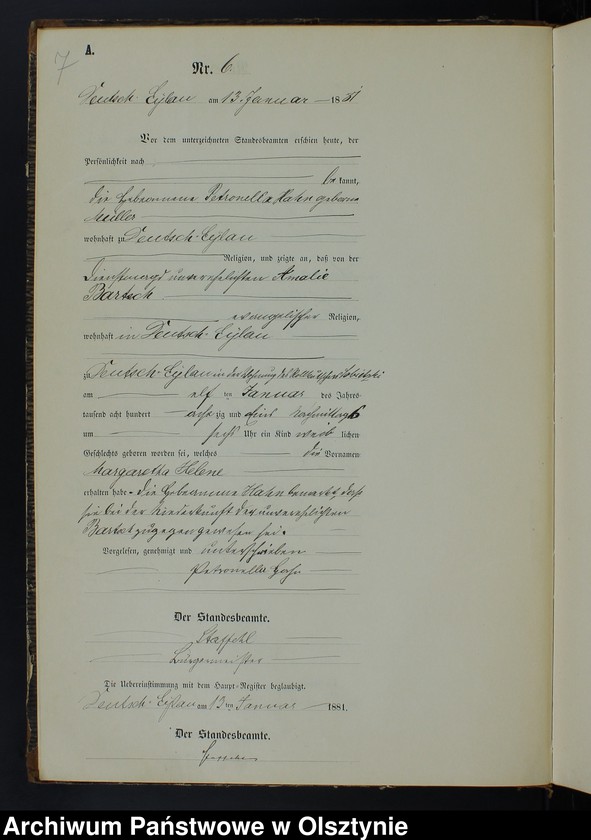 7
A.
Nr. 6
Deutsch-Eylau am 13. Januar 1881
Vor dem unterzeichneten Standesbeamten erschien heute, der
Persönlichkeit nach
be kannt,
die Hebeamme Petronella Hahn geborene
Müller
wohnhaft zu Deutsch-Eylau
Religion, und zeigte an, daß von der
Dienstmagd unverehelichten Amalie
Bartsch
evangelischer Religion,
wohnhaft in Deutsch-Eylau
zu Deutsch-Eylau in der Wohnung des
am elf ten Januar des Jahres
tausend acht hundert acht zig und eins Nachmittag 6
um sechs Uhr ein Kind weib lichen
Geschlechts geboren worden sei, welches die Vornamen
Margaretha Helene
erhalten habe. die Hebeamme Hahn bemerkt, daß
sie bei der Niederkunft der unverehelichten
zugegen gewesen sei.
Vorgelesen, genehmigt und unterschrieben
Petronella Hahn
Der Standesbeamte.
Staffehl
Bürgermeister
Die Uebereinstimmung mit dem Haupt-Register beglaubigt.
Deutsch-Eylau am 13 ten Januar 1881.
Der Standesbeamte.
Archiwum Państwowe w Olsztynie